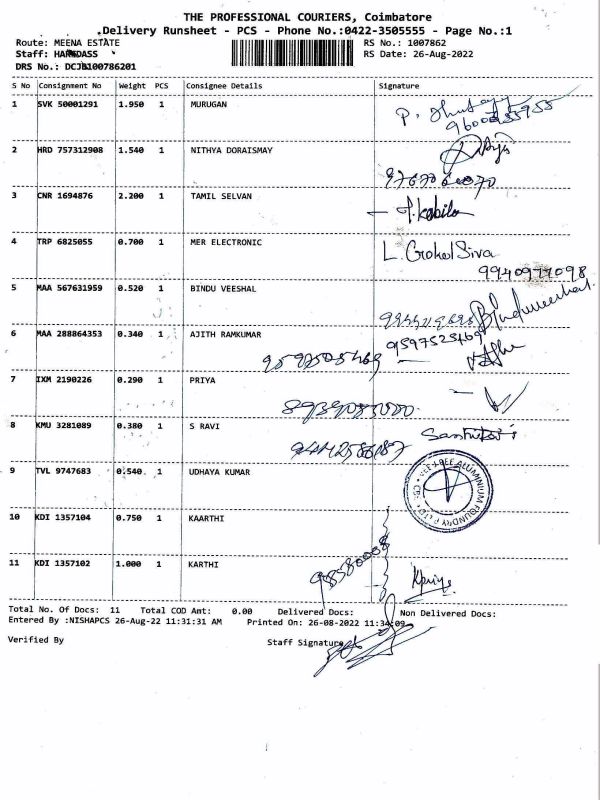 THE PROFESSIONAL COURIERS, Coimbatore
Delivery Runsheet - PCS - Phone No.:0422-3505555 - Page No.:1
Route: MEENA ESTATE
RS No.: 1007862
Staff: HARIDASS
RS Date: 26-Aug-2022
DRS No.: DCJB100786201
S No Consignment No Weight PCS Consignee Details Signature
1 SVK 50001291 1.950 1 MURUGAN
2 HRD 757312908 1.540 1 NITHYA DORAISMAY
3 CNR 1694876 2.200 1 TAMIL SELVAN
4 TRP 6825055 0.700 1 MER ELECTRONIC L. Gokul Siva
9940977098
5 MAA 567631959 0.520 1 BINDU VEESHAL Binduveeshal
6 MAA 288864353 0.340 1 AJITH RAMKUMAR 9597525469
7 IXM 2190226 0.290 1 PRIYA
8 KMU 3281089 0.380 1 S RAVI
9 TVL 9747683 0.540 1 UDHAYA KUMAR
10 KDI 1357104 0.750 1 KAARTHI
11 KDI 1357102 1.000 1 KARTHI
Total No. Of Docs: 11 Total COD Amt: 0.00 Delivered Docs: Non Delivered Docs:
Entered By :NISHAPCS 26-Aug-22 11:31:31 AM Printed On: 26-08-2022 11:34:09
Verified By Staff Signature